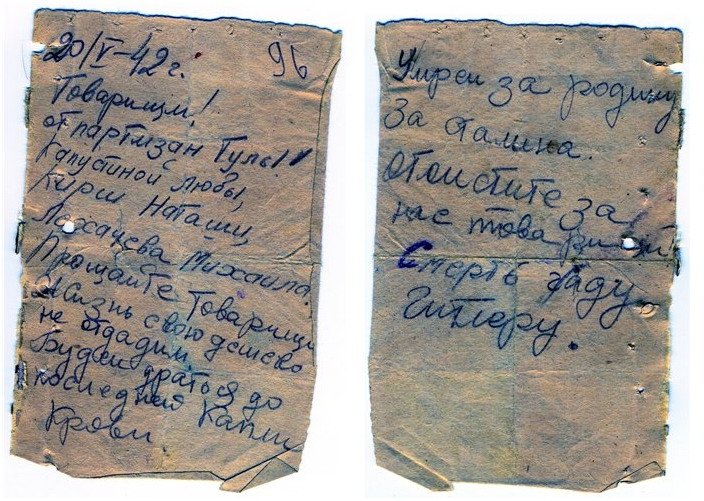 20/V-42г. 96
Товарищи!
от партизан Тулы!
Капустиной Любы,
Кирши Наташи,
Михаила.
Прощайте Товарищи
Жизнь свою дешево
не отдадим.
Будем драться до
последней капли
Крови
Умрем за родину
За Сталина.
Отомстите за
нас товарищи!
Смерть гаду
Гитлеру.